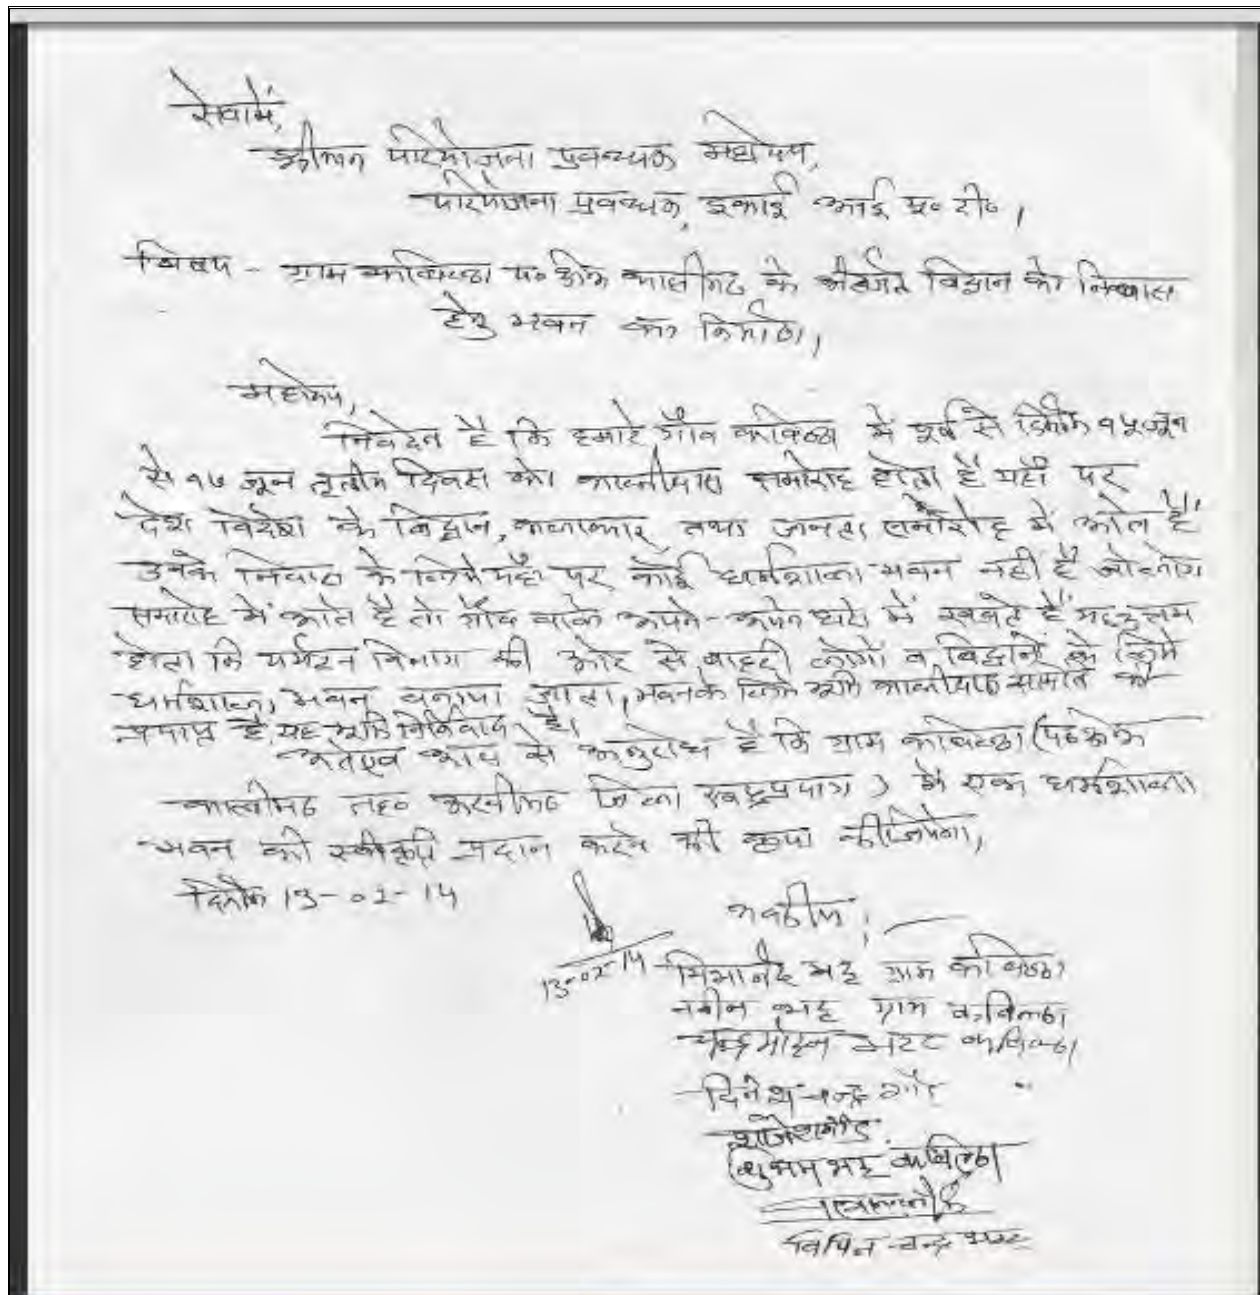 सेवामें,
श्रीमान परियोजना प्रबन्धक महोदय,
परियोजना प्रबन्धक, इकाई आई० टी०,
विषय - ग्राम कविल्ठा प० क्षे० कालीमठ के अंतर्गत विद्वान को निवास
हेतु भवन का निर्माण,
महोदय,
निवेदन है कि हमारे गाँव कविल्ठा में पूर्व से दिनांक १५ जून
से १७ जून तृतीय दिवस को कालीदास समारोह होता है यहाँ पर
देश विदेश के विद्वान, कलाकार, तथा जनता समारोह में आते हैं
उनके निवास के लिये यहाँ पर कोई धर्मशाला भवन नही है जो लोग
समारोह में आते है तो गाँव वाले अपने-अपने घरो में रखते हैं
होता कि पर्यटन विभाग की ओर से बाहरी लोगों व विद्वानों के लिये
धर्मशाला, भवन बनाया जाता, भवन के लिये भूमि कालीदास समिति को
प्रदान है, यह भूमि निर्विवाद है।
अतएव आप से अनुरोध है कि ग्राम कविल्ठा
कालीमठ तह० ऊखीमठ जिला रूद्रप्रयाग ) में एक धर्मशाला
भवन की स्वीकृति प्रदान करने की कृपा कीजियेगा,
दिनांक 13-02-14
भवदीय,
13-02-14
भट्ट ग्राम कविल्ठा
नवीन भट्ट ग्राम कविल्ठा
चन्द्रमोहन भट्ट कविल्ठा
दिनेश चन्द्र गौड़
राजेश गौड़
शुभम भट्ट कविल्ठा
विपिन चन्द्र भट्ट